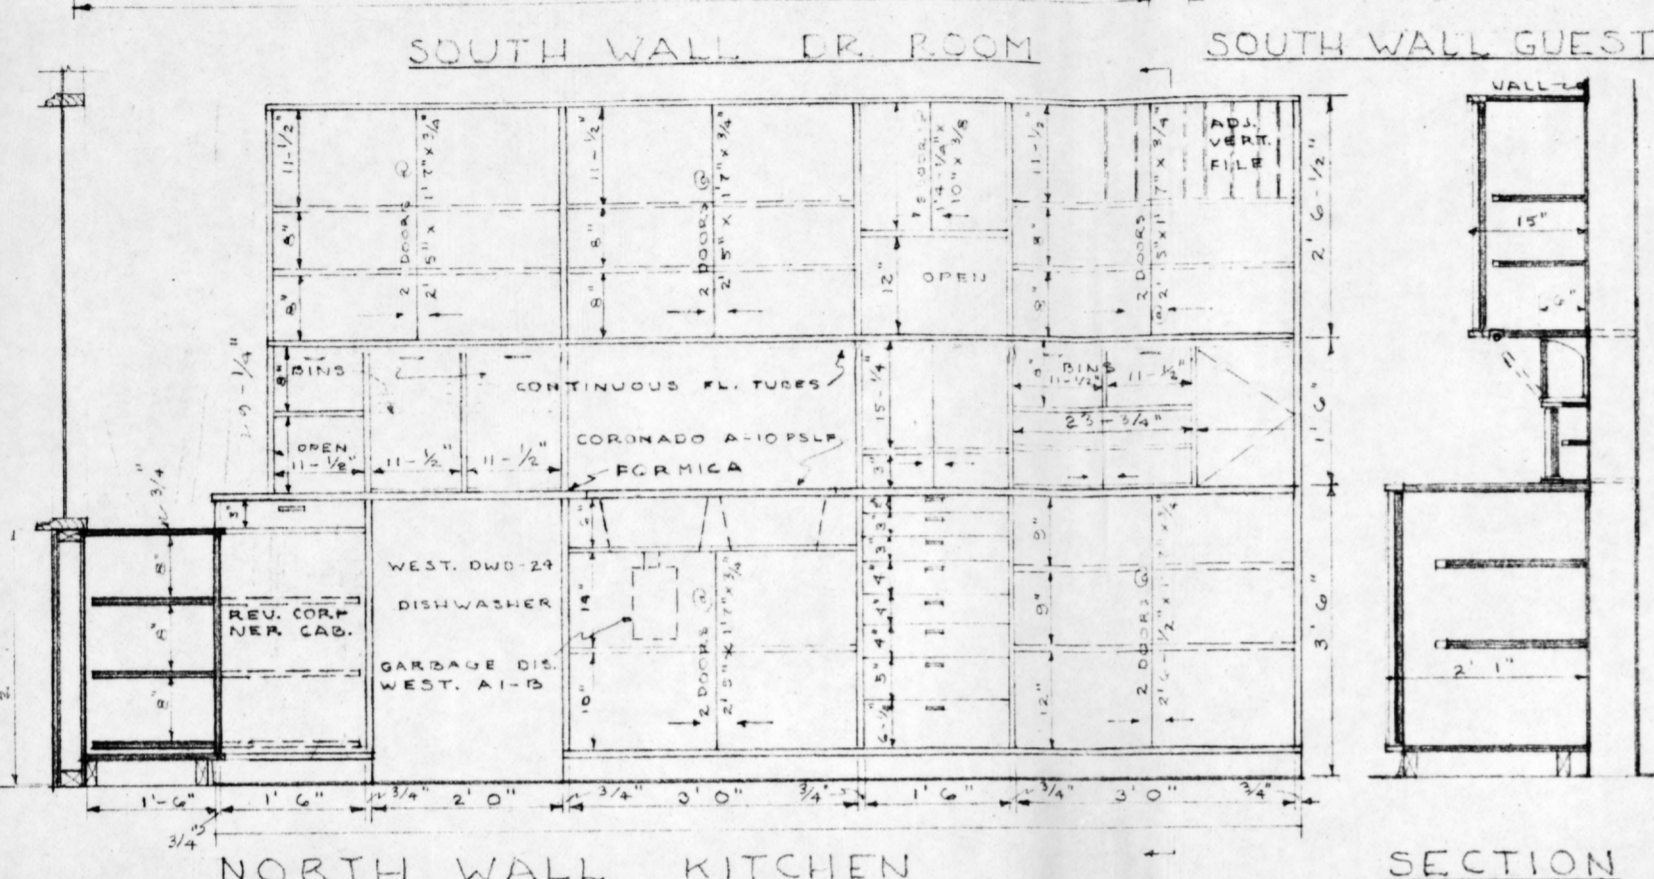 SOUTH WALL DR. ROOM
SOUTH WALL GUEST
WALL
11-1/2"
8"
8"
2 DOORS @
2' 5" x 1' 7" x 3/4"
11-1/2"
8"
8"
2 DOORS @
2' 5" x 1' 7" x 3/4"
2 DOORS
1'-4-1/4" x
10" x 3/8
12"
OPEN
11-1/2"
8"
8"
2 DOORS
2' 5" x 1' 7" x 3/4"
ADJ.
VERT.
FILE
2' 6-1/2"
15"
6"
9-1/4"
8"
BINS
OPEN
11-1/2"
11-1/2"
11-1/2"
CONTINUOUS FL. TUBES
CORONADO A-10PSLF
FORMICA
15-1/4"
3"
8"
BINS
11-1/2"
11-1/2"
2'3-3/4"
1' 6"
3/4"
3"
8"
8"
8"
REV. COR
NER CAB.
WEST. DWD-24
DISHWASHER
GARBAGE DIS.
WEST. A1-B
14"
10"
2 DOORS @
2' 5" x 1' 7" x 3/4"
3"
3"
4"
4"
4"
5"
6-1/2"
9"
9"
12"
2 DOORS @
3' 6"
2' 1"
1'-6"
3/4"
1' 6"
3/4"
2' 0"
3/4"
3' 0"
3/4"
1' 6"
3/4"
3' 0"
3/4"
NORTH WALL KITCHEN
SECTION